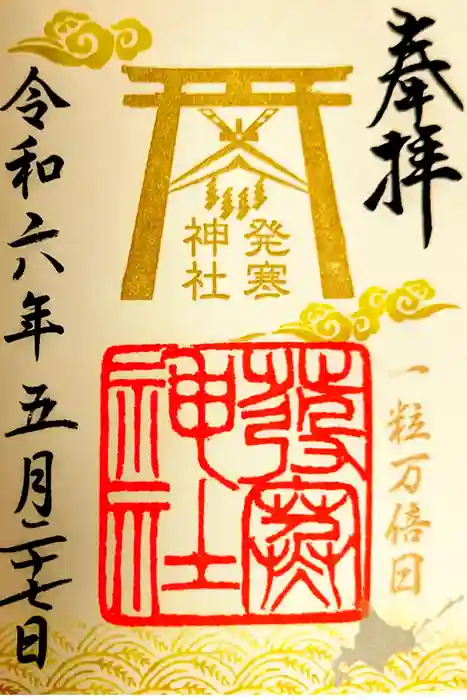 奉拝
発寒
神社
一粒万倍日
發寒
神社
令和六年五月二十七日